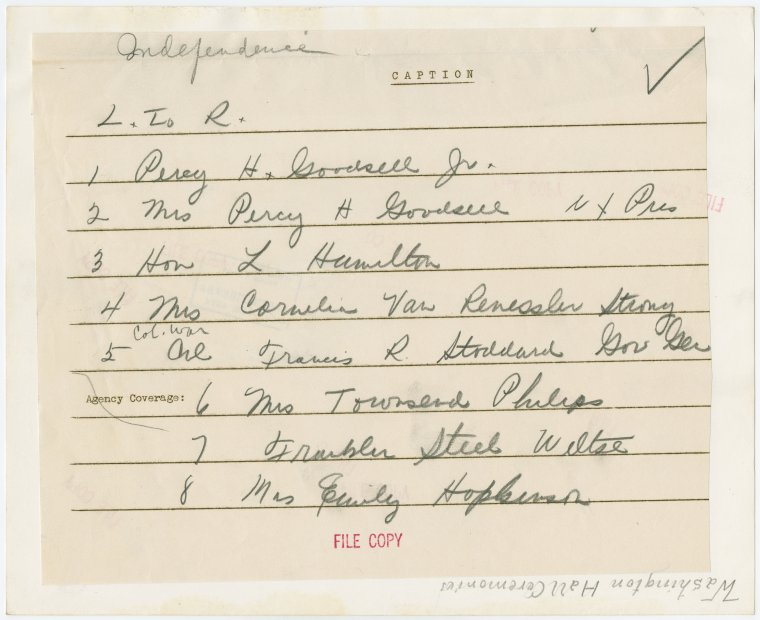 Independence
CAPTION
L. To R.
1 Percy H. Goodsell Jr.
2 Mrs Percy H Goodsell Pres
3 Hon L Hamilton
4 Mrs Cornelia Van Renessler Strong
Col. War
5 Col Francis R. Stoddard Gov Gen
Agency Coverage: 6 Mrs Townsend Philips
7 Franklin Steel Wiltse
8 Mrs Emily Hopkinson
FILE COPY
Washington Hall Ceremonies